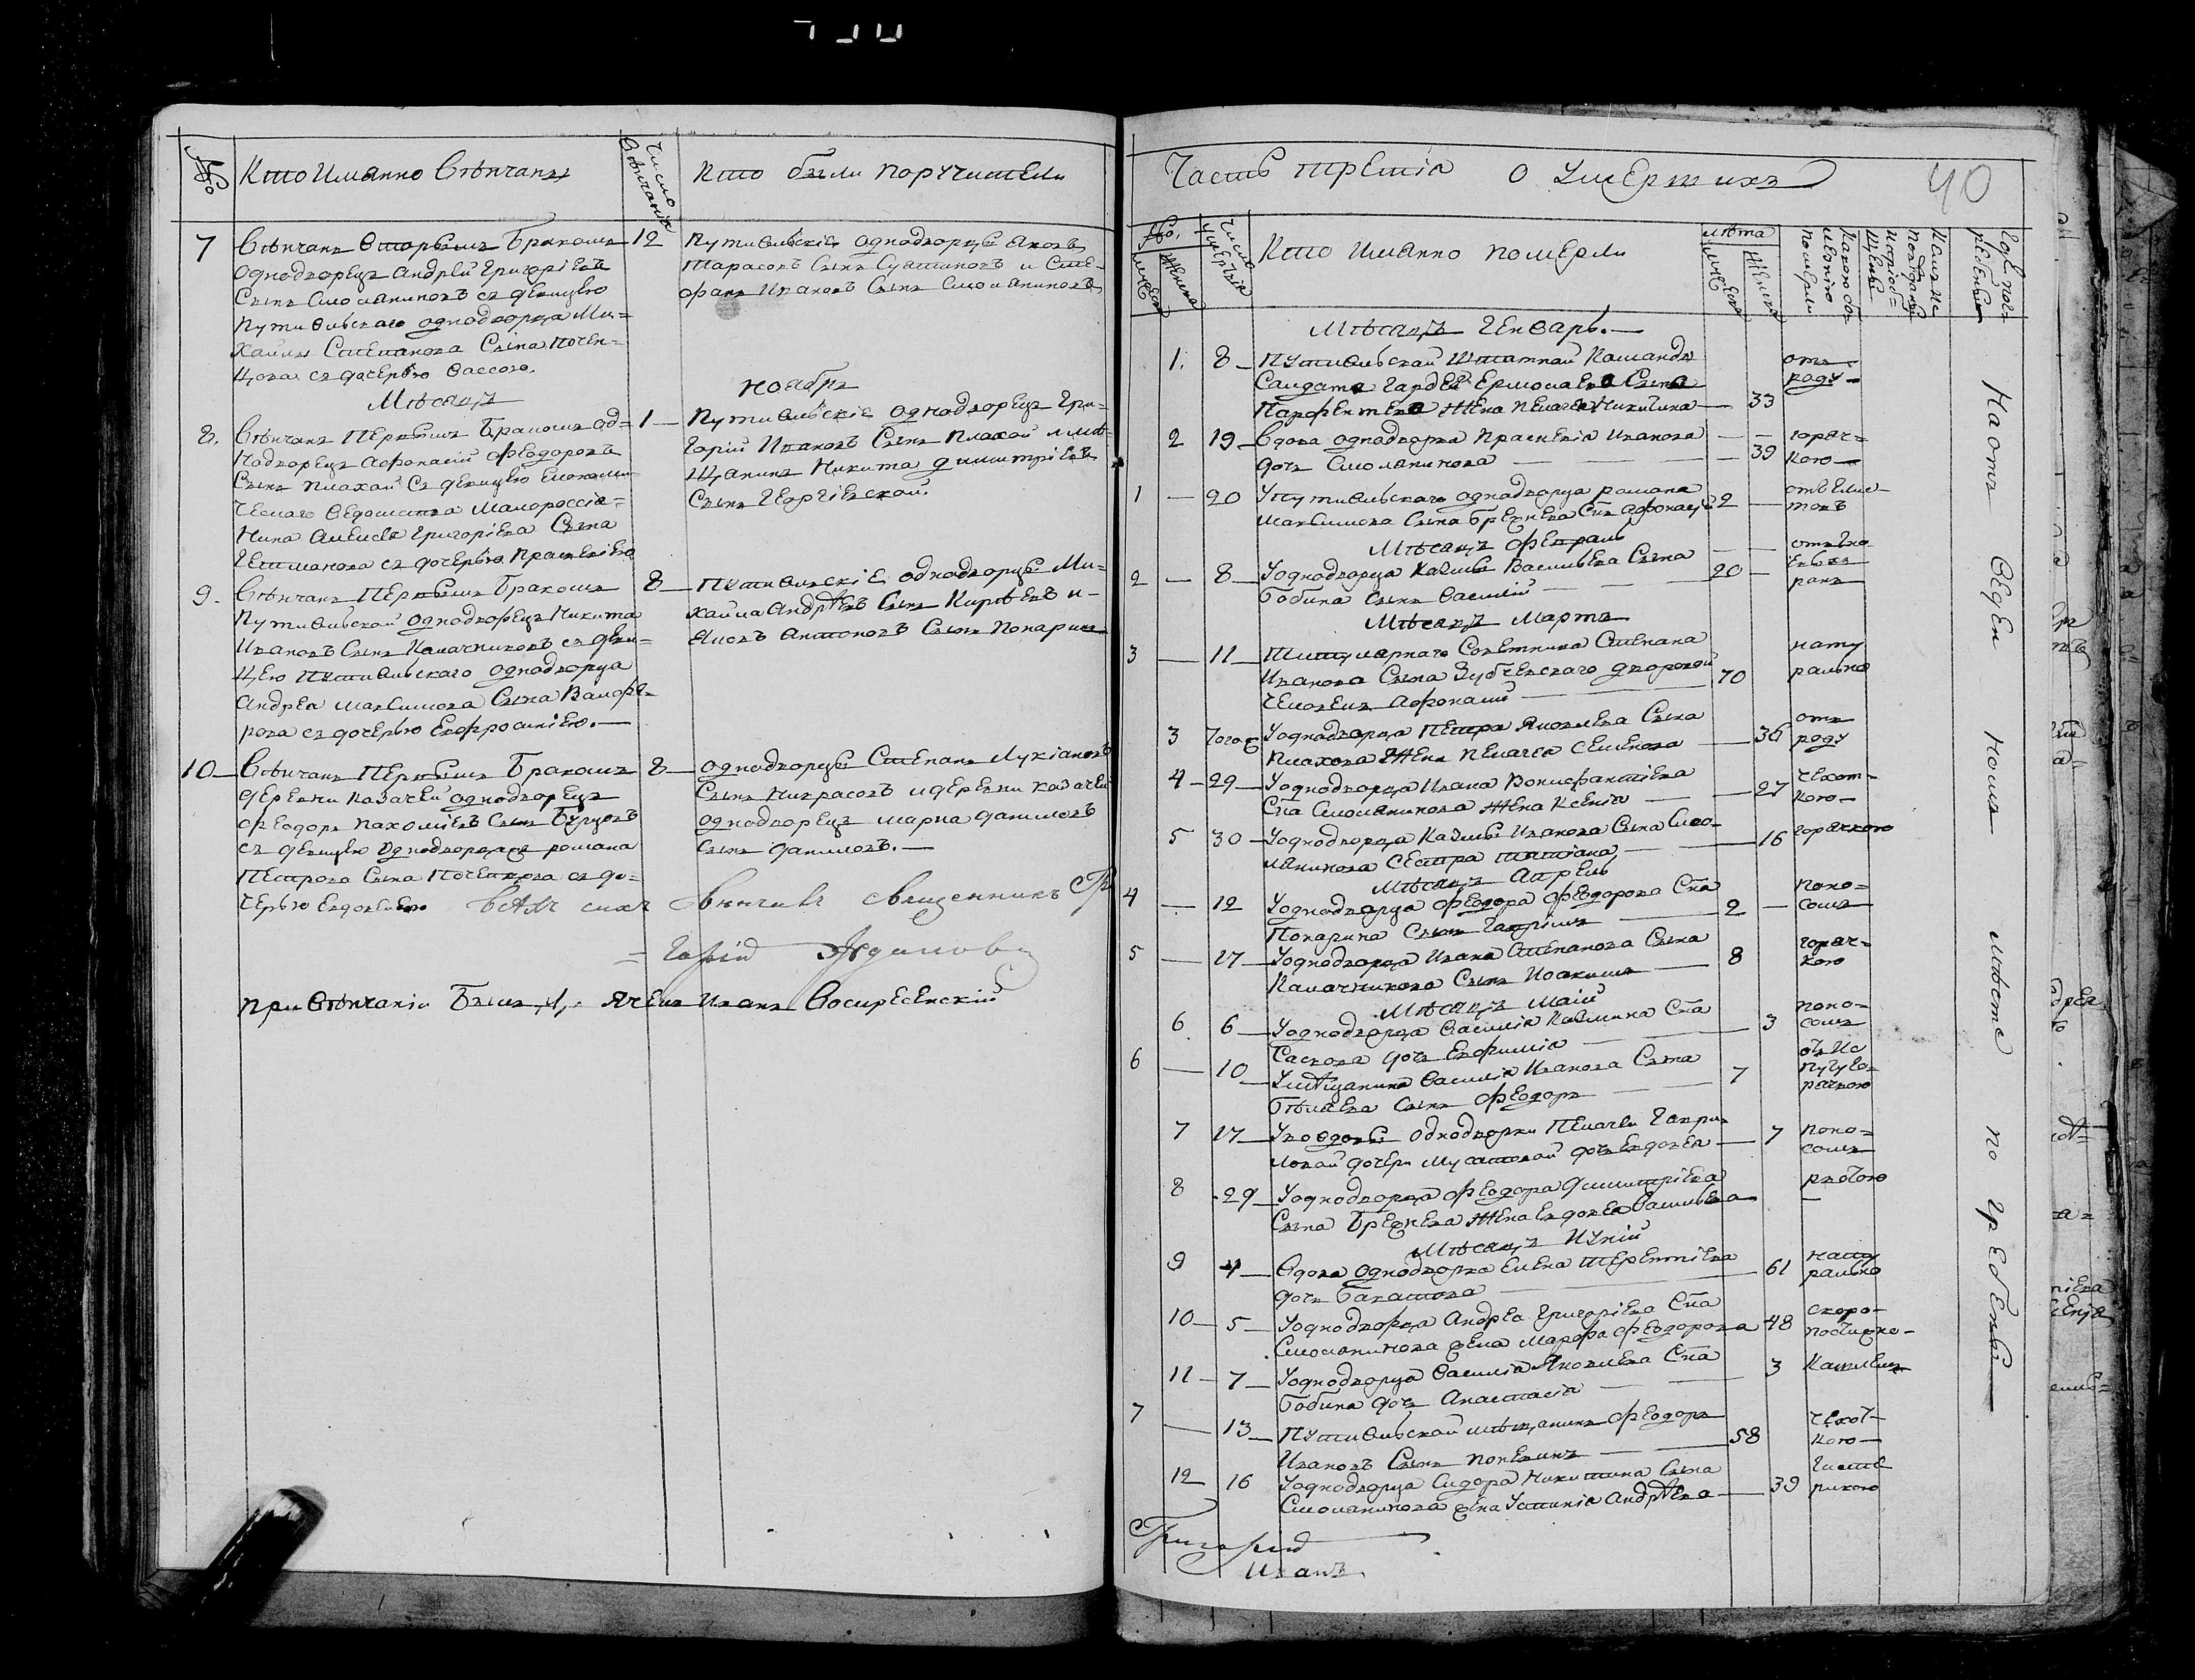 №
Кто Имянно Венчаны
Число венчанія
Кто были поручители
7 Венчанъ Вторымъ Бракомъ 12
однодворецъ андрей григорьевъ
Сынъ Смолениновъ съ девицею
Путивльскаго однодворца Ми=
хайлы Степанова Сына Почеп=
цова съ дочерью Вассою.
Путивльскіе однодворцы Яковъ
Тарасовъ Сынъ и Сте=
фанъ Ивановъ Сынъ Смолениновъ
Месяцъ Ноябрь
8. Венчанъ Первымъ Бракомъ од= 1
нодворецъ Афонасій Феодоровъ
Сынъ Плахой Съ девицею Економи
ческаго Ведомства Малороссія=
нина Алексея Григоріева Сына
Гетманова съ дочерью Праскевіею
Путивльскіе однодворецъ Гри=
горій Ивановъ Сынъ Плахой и ме=
щанинъ Никита дмитріевъ
Сынъ Георгіевской.
9. Венчанъ Первымъ Бракомъ 8
Путивльской однодворецъ Никита
Ивановъ Сынъ Калачниковъ съ деви=
цею Путивльскаго однодворца
Андрея Максимова Сына
рова съ дочерью Евфросиніею.
Путивльскіе однодворцы Ми=
хайла Андреевъ Сынъ Киреевъ и
Яковъ Антоновъ Сынъ Понаринъ
10 Венчанъ Первымъ Бракомъ 8
деревни Казачей однодворецъ
Феодоръ Пахомиевъ Сынъ Бурцовъ
съ девицею однодворца романа
Петрова Сына Почепцова съ до=
черью Евдокиею
однодворцы Степанъ Лукіановъ
Сынъ Некрасовъ и деревни казачей
однодворецъ марка даниловъ
Сынъ даниловъ.
Всехъ сихъ венчалъ священникъ Гри
=горій Ждановъ
при Венчаніи Былъ дьячекъ Иванъ Воскресенскій
Часть третія о умертихъ 40
№.
мужеска
женска
Число умертвія
Кто имянно померли
лета
мужеска
женска
Какою бо=
лезнію
померли
Кемъ ис
поведаны
и пріоб=
щены
Где погр
ребены
Месяцъ Генварь.
1. 8 Путивльской Штатной Команды
Салдата Гордея Ермолаева Сына
Парфентева жена Пелагея Никитина 33
отъ
роду
2 19 Вдова однодворка Праскевія Иванова
дочь Смоленинова 39
горяч=
кою
1 20 У путивльскаго однодворца романа
Максимова Сына Брежнева Снъ Афонасій 2
Месяцъ Февраль
2 8 У однодворца Казмы Васильева Сына
Бобина Сынъ Василій 20
Месяцъ Мартъ
3 11 Титулярнаго Советника Степана
Иванова Сына Зубчевскаго дворовой
человекъ Афонасий 70
нату
рально
3 Того ж У однодворца Петра Яковлева Сына
Плахова жена Пелагея Семенова 36
отъ
роду
4 29 У однодворца Ивана Вонифантіева
Сна Смоленинова жена Ксенія 27
чехот=
кою
5 30 У однодворца Казмы Иванова Сына Смо=
ленинова сестра татіана 16 горячкою
Месяцъ Апрель
4 12 У однодворца Феодора Феодорова Сна
Понарина Сынъ Гавріилъ 2
поно=
сомъ
5 17 У однодворца Ивана Степанова Сына
Калачникова Сынъ Иоакимъ 8
горяч=
кою
Месяцъ Маій
6 6 У однодворца Василія Казмина Сна
Часкова дочь Евфимія 3
поно=
сомъ
6 10 У мещанина Василія Иванова Сына
Беляева Сынъ Феодоръ 7
7 17 У вдовы однодворки Пелагеи Гаври
ловой дочери Мусатовой дочь Евдокея 7
поно=
сомъ
8 29 У однодворца Феодора Дмитріева
Сына Брежнева жена Евдокея Васильева
Месяцъ Иуній
9 4 Вдова однодворка Елена Терентіева
дочь Баклашова 61
нату
рально
10 5 У однодворца Андрея Григоріева Сна
Смоленинова жена Марфа Феодорова 48
скоро
постижно
11 7 У однодворца Василія Яковлева Сна
Бобина дочь Анастасія 3 Кашлемъ
7 13 Путивльской мещанинъ Феодоръ
Ивановъ Сынъ Попкинъ 58
чехот
кою
12 16 У однодворца Сидора Никитина Сына
Смоленинова жена Устинія Андреева 39
На отъ веденномъ месте по гребены
Григорій
Иванъ